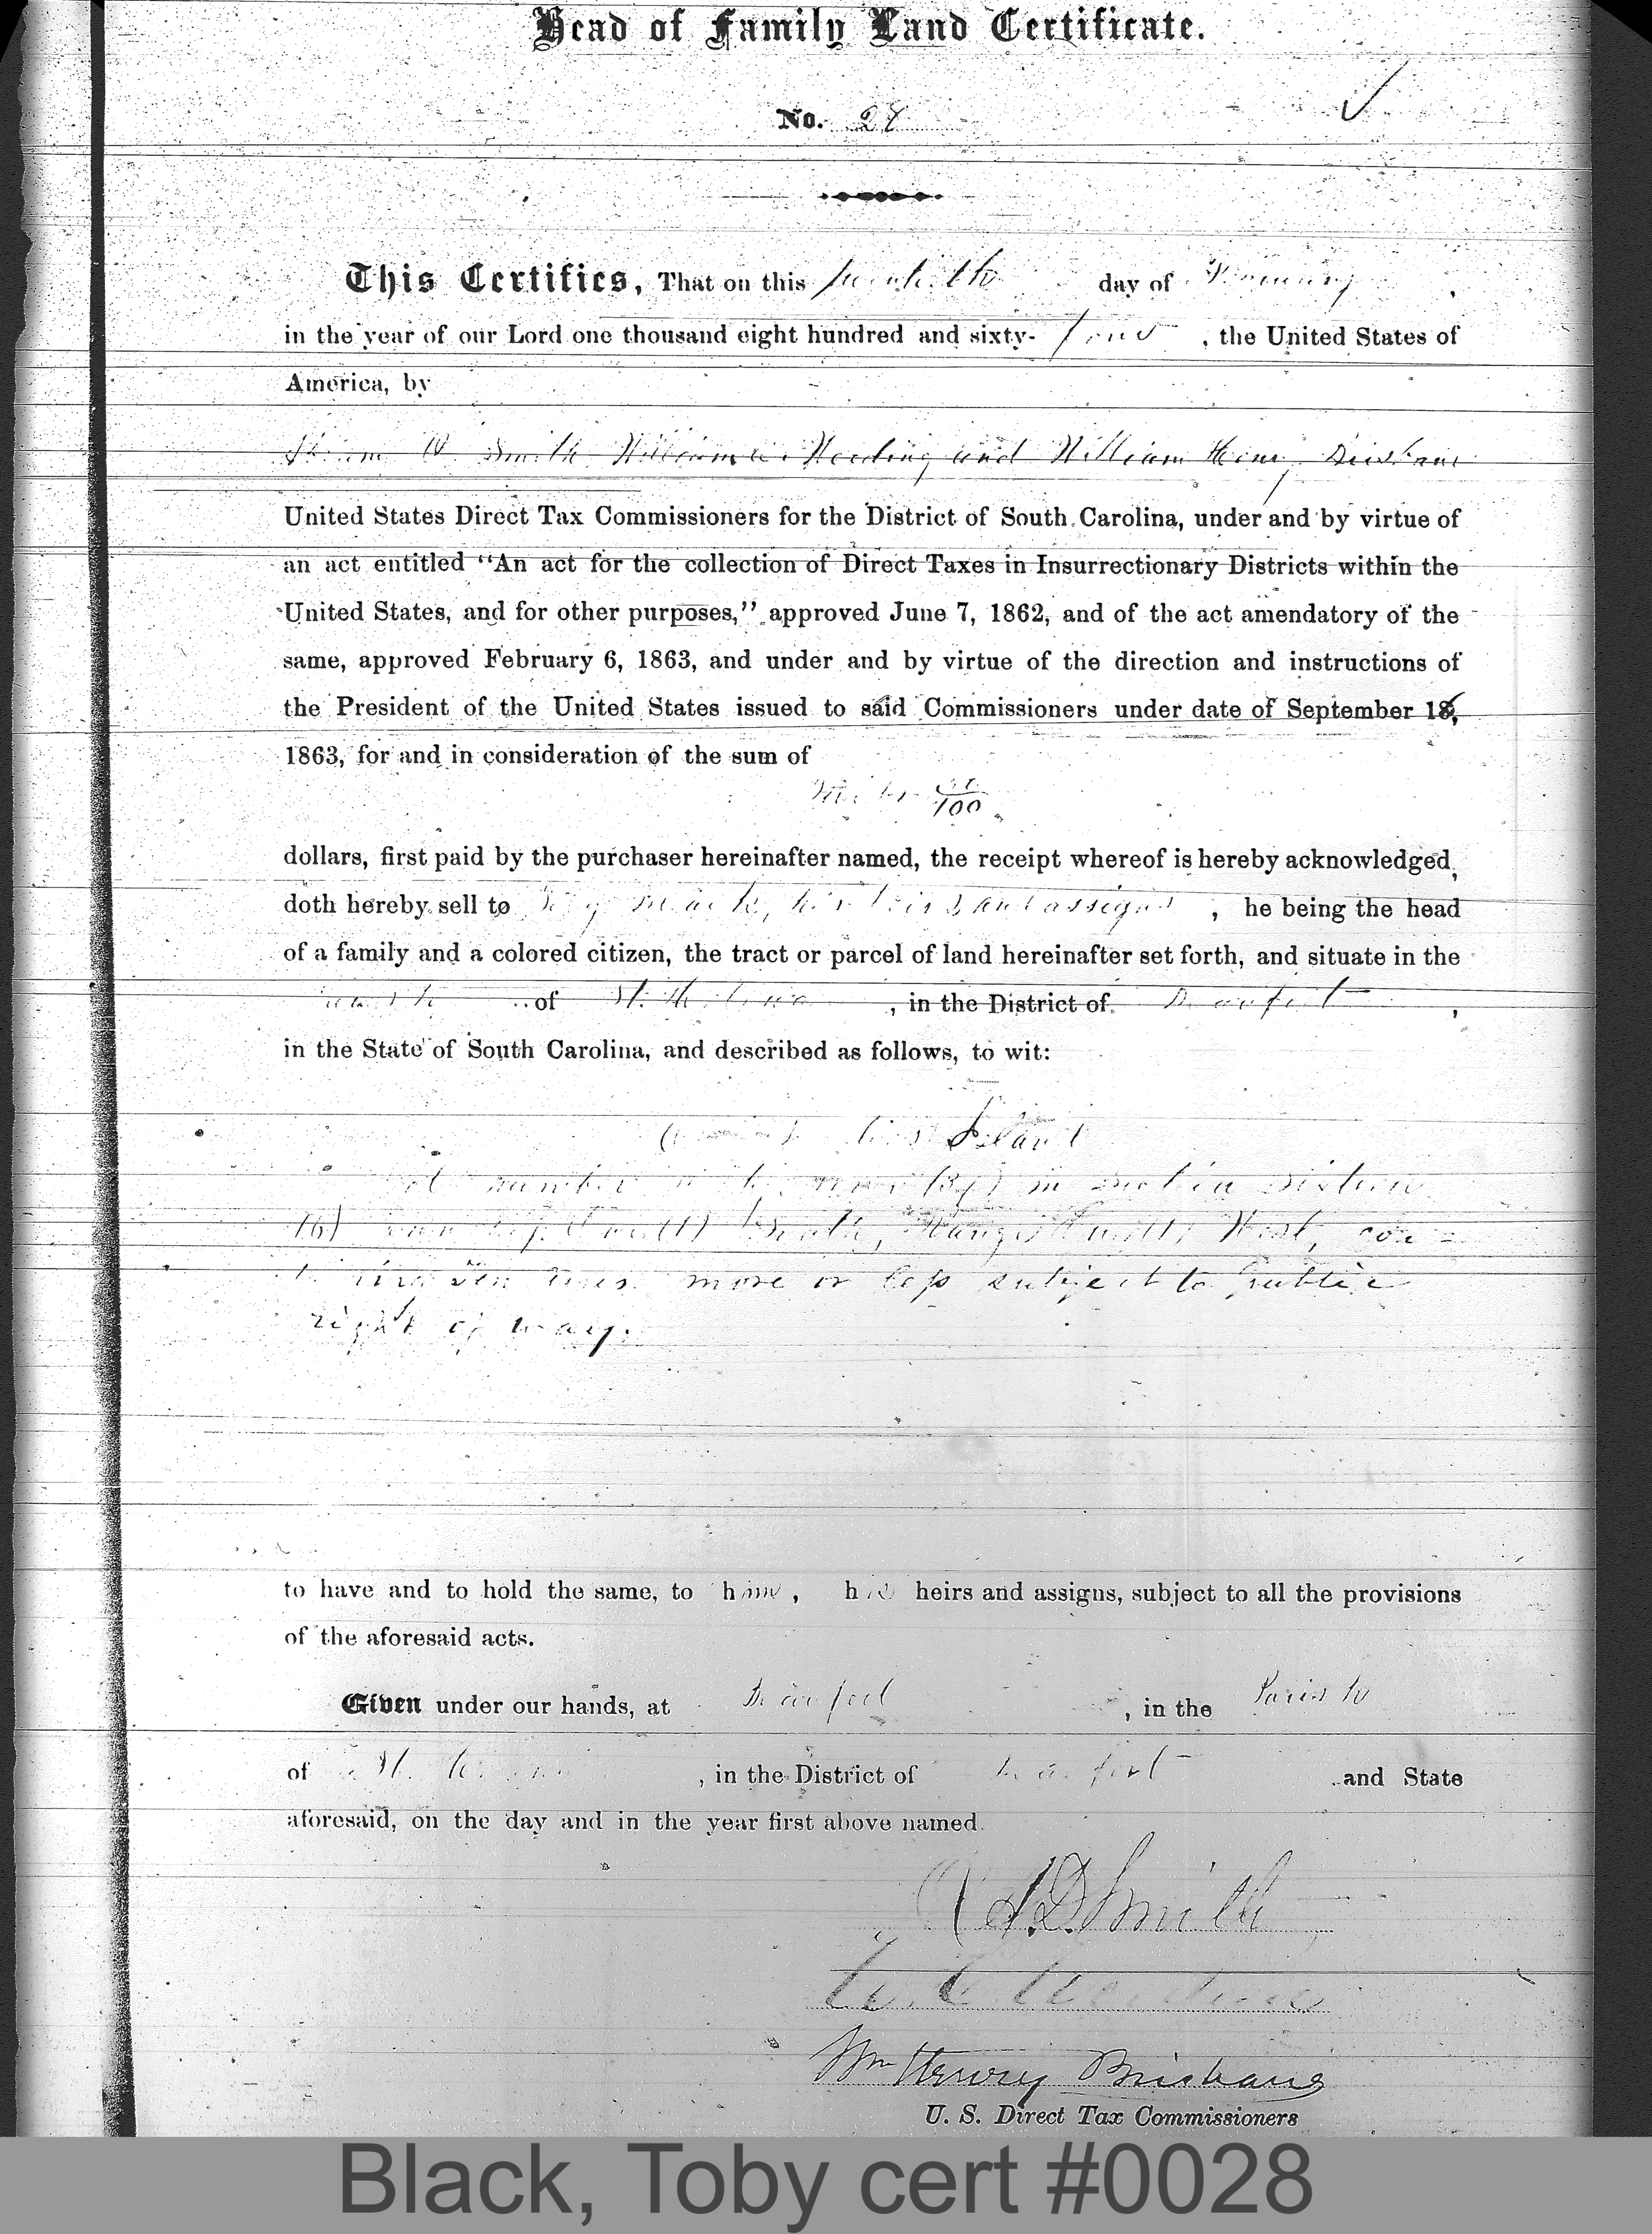 Head of Family Land Certificate.
No. 28
This Certifies, That on this day of
in the year of our Lord one thousand eight hundred and sixty- four , the United States of
America, by
Smith, William Wording and William Henry Brisbane
United States Direct Tax Commissioners for the District of South Carolina, under and by virtue of
an act entitled "An act for the collection of Direct Taxes in Insurrectionary Districts within the
United States, and for other purposes," approved June 7, 1862, and of the act amendatory of the
same, approved February 6, 1863, and under and by virtue of the direction and instructions of
the President of the United States issued to said Commissioners under date of September 16,
1863, for and in consideration of the sum of
/100
dollars, first paid by the purchaser hereinafter named, the receipt whereof is hereby acknowledged,
doth hereby sell to his heirs and assigns , he being the head
of a family and a colored citizen, the tract or parcel of land hereinafter set forth, and situate in the
Parish of St. Helena , in the District of Beaufort ,
in the State of South Carolina, and described as follows, to wit:
Island
Lot number in Section Sixteen
(16) South, Range West, con-
taining ten acres more or less subject to public
right of way.
to have and to hold the same, to him, his heirs and assigns, subject to all the provisions
of the aforesaid acts.
Given under our hands, at Beaufort , in the Parish
of St. Helena , in the District of Beaufort and State
aforesaid, on the day and in the year first above named.
A. D. Smith
W. E. Wording
Wm Henry Brisbane
U. S. Direct Tax Commissioners
Black, Toby cert #0028